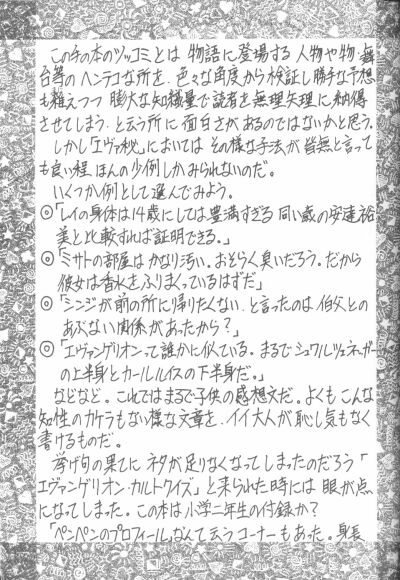 この手の本のツッコミとは 物語に登場する 人物や物・舞
台等のヘンテコな所を、色々な角度から検証し勝手な予想
も雑えつつ 膨大な知識量で読者を無理矢理に納得
させてしまう、と云う所に面白さがあるのではないかと思う。
しかし「エヴァ秘」においては その様な手法が皆無と言って
も良い程、ほんの少例しかみられないのだ。
いくつか例として選んでみよう。
◎「レイの身体は14歳にしては豊満すぎる 同い歳の安達祐
実と比較すれば証明できる。」
◎「ミサトの部屋はかなり汚い。おそらく臭いだろう。だから
彼女は香水をふりまくっているはずだ」
◎「シンジが前の所に帰りたくない、と言ったのは 伯父との
あぶない関係があったから?」
◎「エヴァンゲリオンって誰かに似ている。まるでシュワルツェネッガー
の上半身とカールルイスの下半身だ。」
などなど。これではまるで子供の感想文だ。よくもこんな
知性のカケラもない様な文章を、イイ大人が恥し気もなく
書けるものだ。
挙げ句の果てに ネタが足りなくなってしまったのだろう「
エヴァンゲリオン・カルトクイズ」と来られた時には 眼が点
になってしまった。この本は小学二年生の付録か?
「ペンペンのプロフィール」なんて云うコーナーもあった。身長